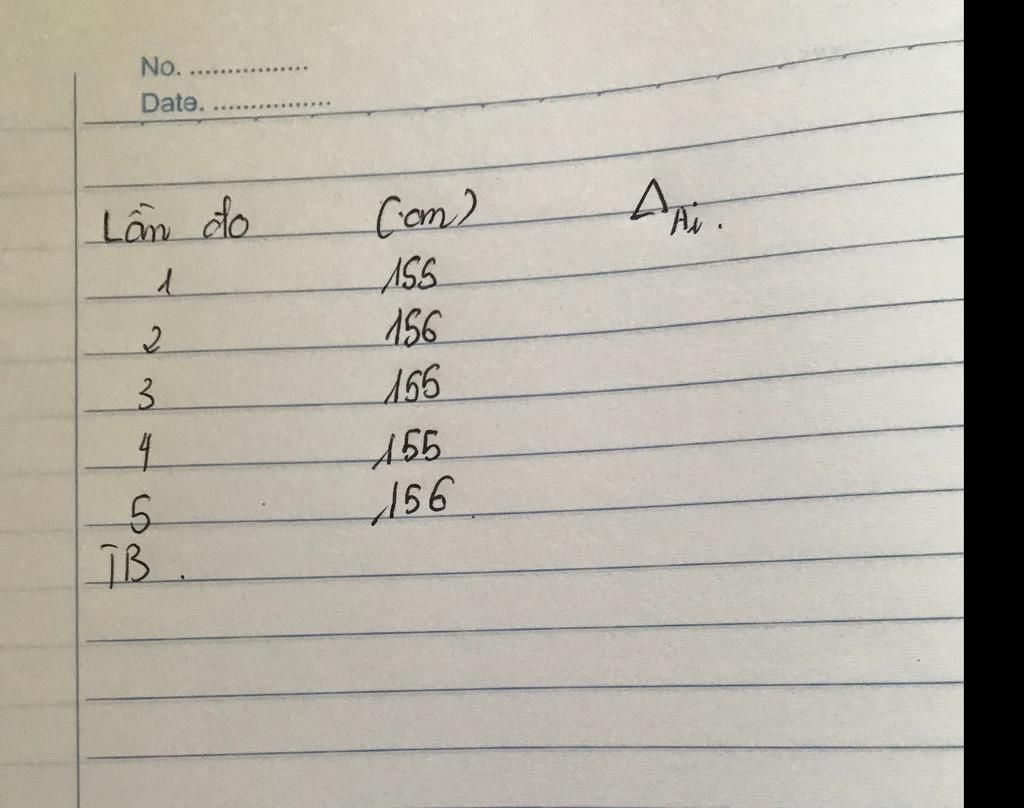 No. ................
Date. ................
Lần đo (cm) ΔAi.
1 155
2 156
3 155
4 155
5 156
TB.